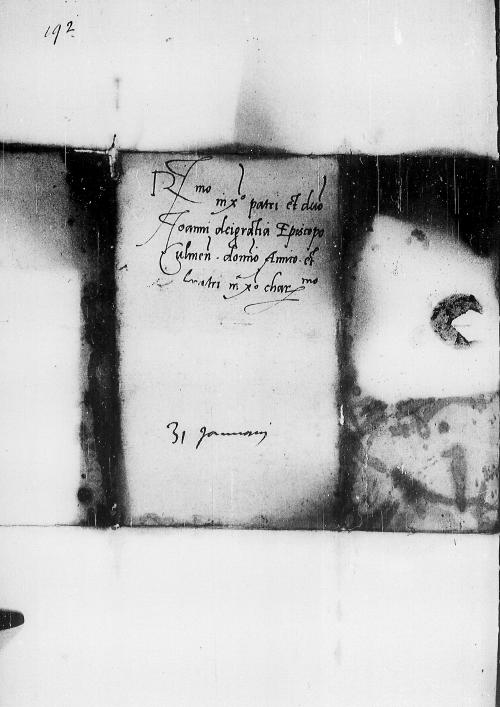 192
R mo
in x̄o patri et dno
Joanni dei gratia Episcopo
Culmen̄. domino Amico et
fratri in x̄o char mo
31 Januarii